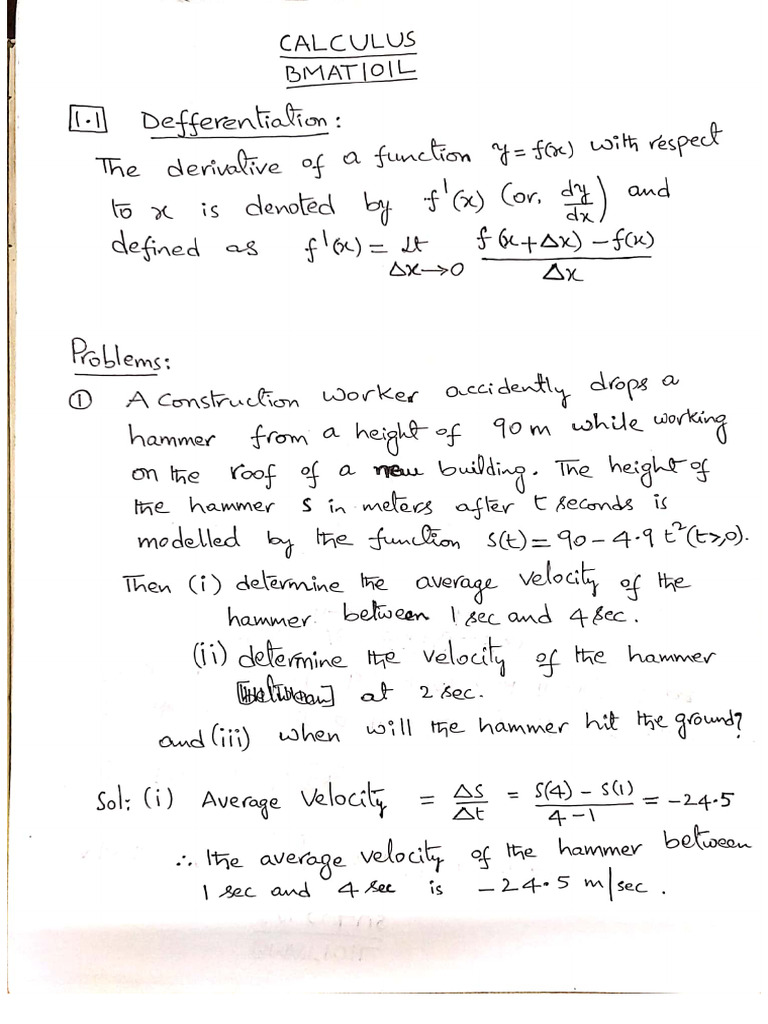 CALCULUS
BMAT101L
1.1 Defferentiation:
The derivative of a function y = f(x) with respect
to x is denoted by f'(x) (or, dy/dx) and
defined as f'(x) = lt Δx→0 f(x+Δx) – f(x) / Δx
Problems:
① A construction worker accidently drops a
hammer from a height of 90 m while working
on the roof of a new building. The height of
the hammer s in meters after t seconds is
modelled by the function s(t) = 90 – 4.9 t² (t≥0).
Then (i) determine the average velocity of the
hammer between 1 sec and 4 sec.
(ii) determine the velocity of the hammer
at 2 sec.
and (iii) when will the hammer hit the ground?
Sol: (i) Average Velocity = Δs/Δt = s(4) – s(1) / 4–1 = –24.5
∴ the average velocity of the hammer between
1 sec and 4 sec is –24.5 m/sec.